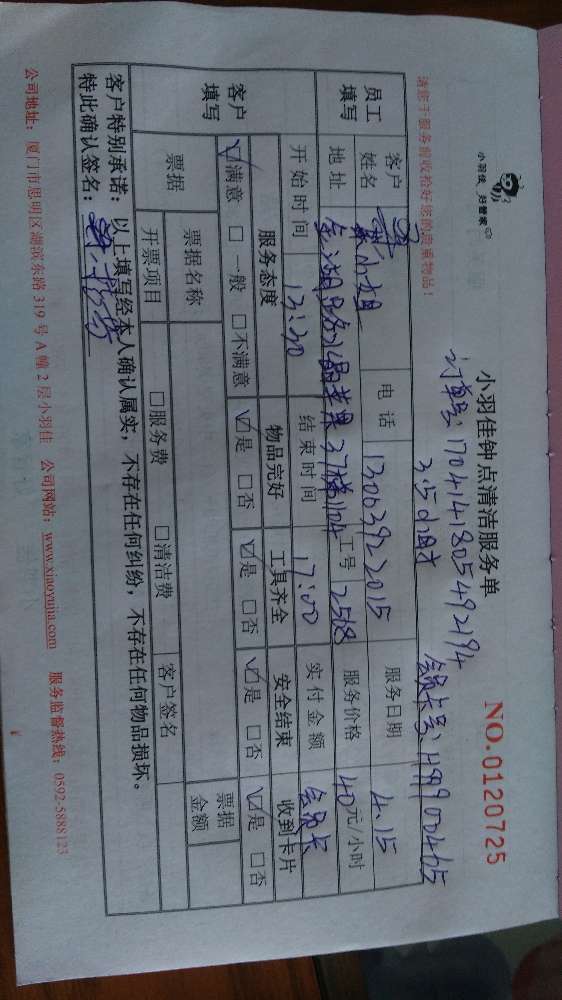 小羽佳 好管家
小羽佳钟点清洁服务单
NO.0120725
订单号:1704141805492194
会员卡号:499900465
请您于服务前收拾好您的贵重物品!
3.5小时
员工填写
客户姓名 小姐 电话 13063922015 服务日期 4.15
地址 金湖 37梯1104 工号 2518 服务价格 40元/小时
开始时间 13:30 结束时间 17:00 实付金额 会员卡
客户填写
服务态度 物品完好 工具齐全 安全结束 收到卡片
☑满意 □一般 □不满意 ☑是 □否 ☑是 □否 ☑是 □否 ☑是 □否
票据 票据名称 票据金额
开票项目 □服务费 □清洁费 客户签名
客户特别承诺:以上填写经本人确认属实,不存在任何纠纷,不存在任何物品损坏。
特此确认签名:
公司地址:厦门市思明区湖滨东路319号A幢2层小羽佳 公司网站:www.xiaoyujia.com 服务监督热线:0592-5888123